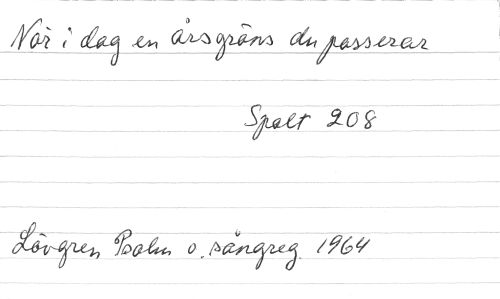 När i dag en årsgräns du passerar
Spalt 208
Lövgren Psalm o. sångreg. 1964